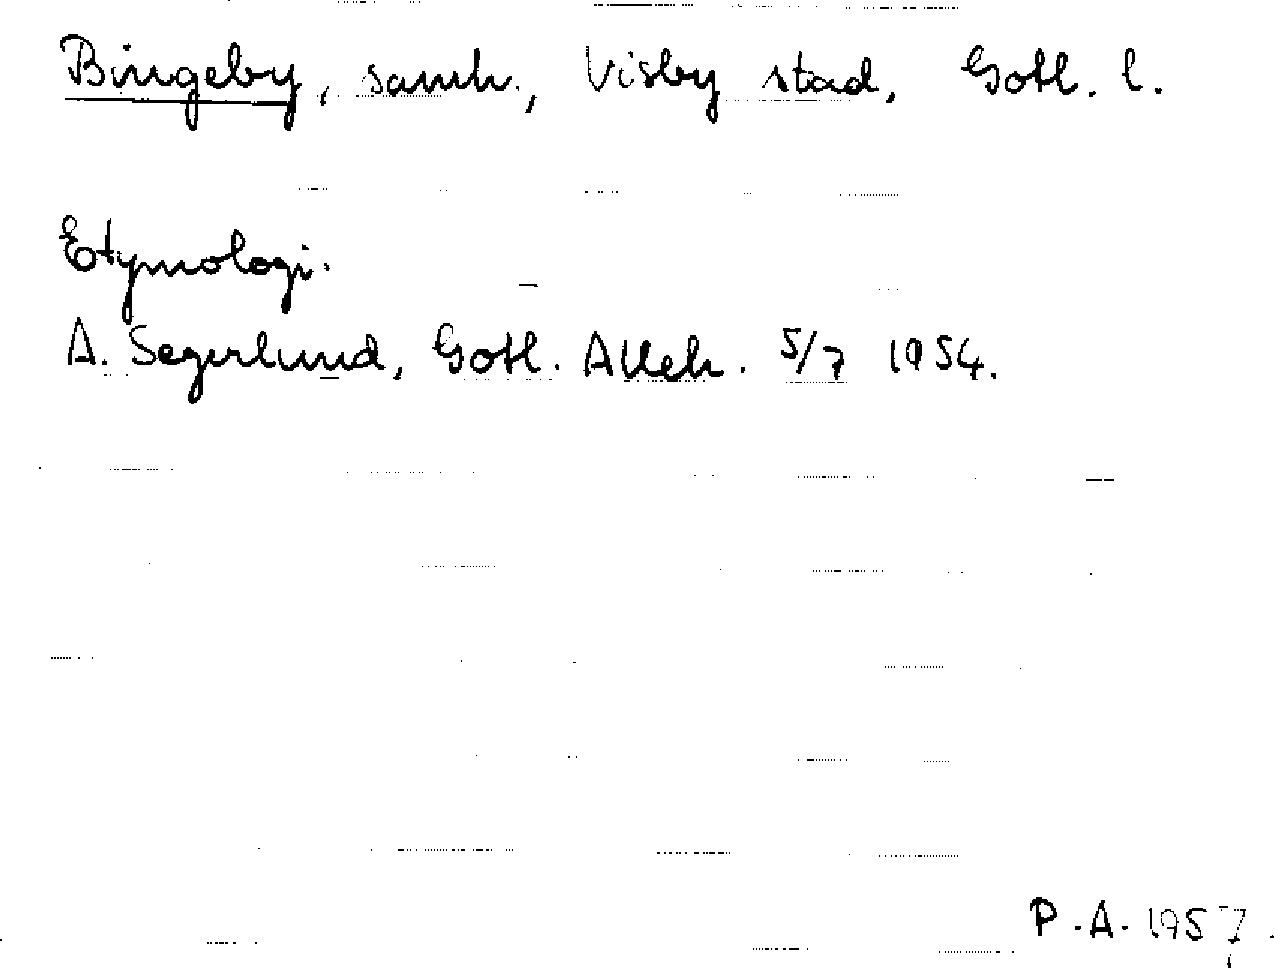 Bingeby, samh., Visby stad, Gotl. l.
Etymologi.
A. Segerlund, Gotl. Alleh. 5/7 1954.
P.A. 1957.